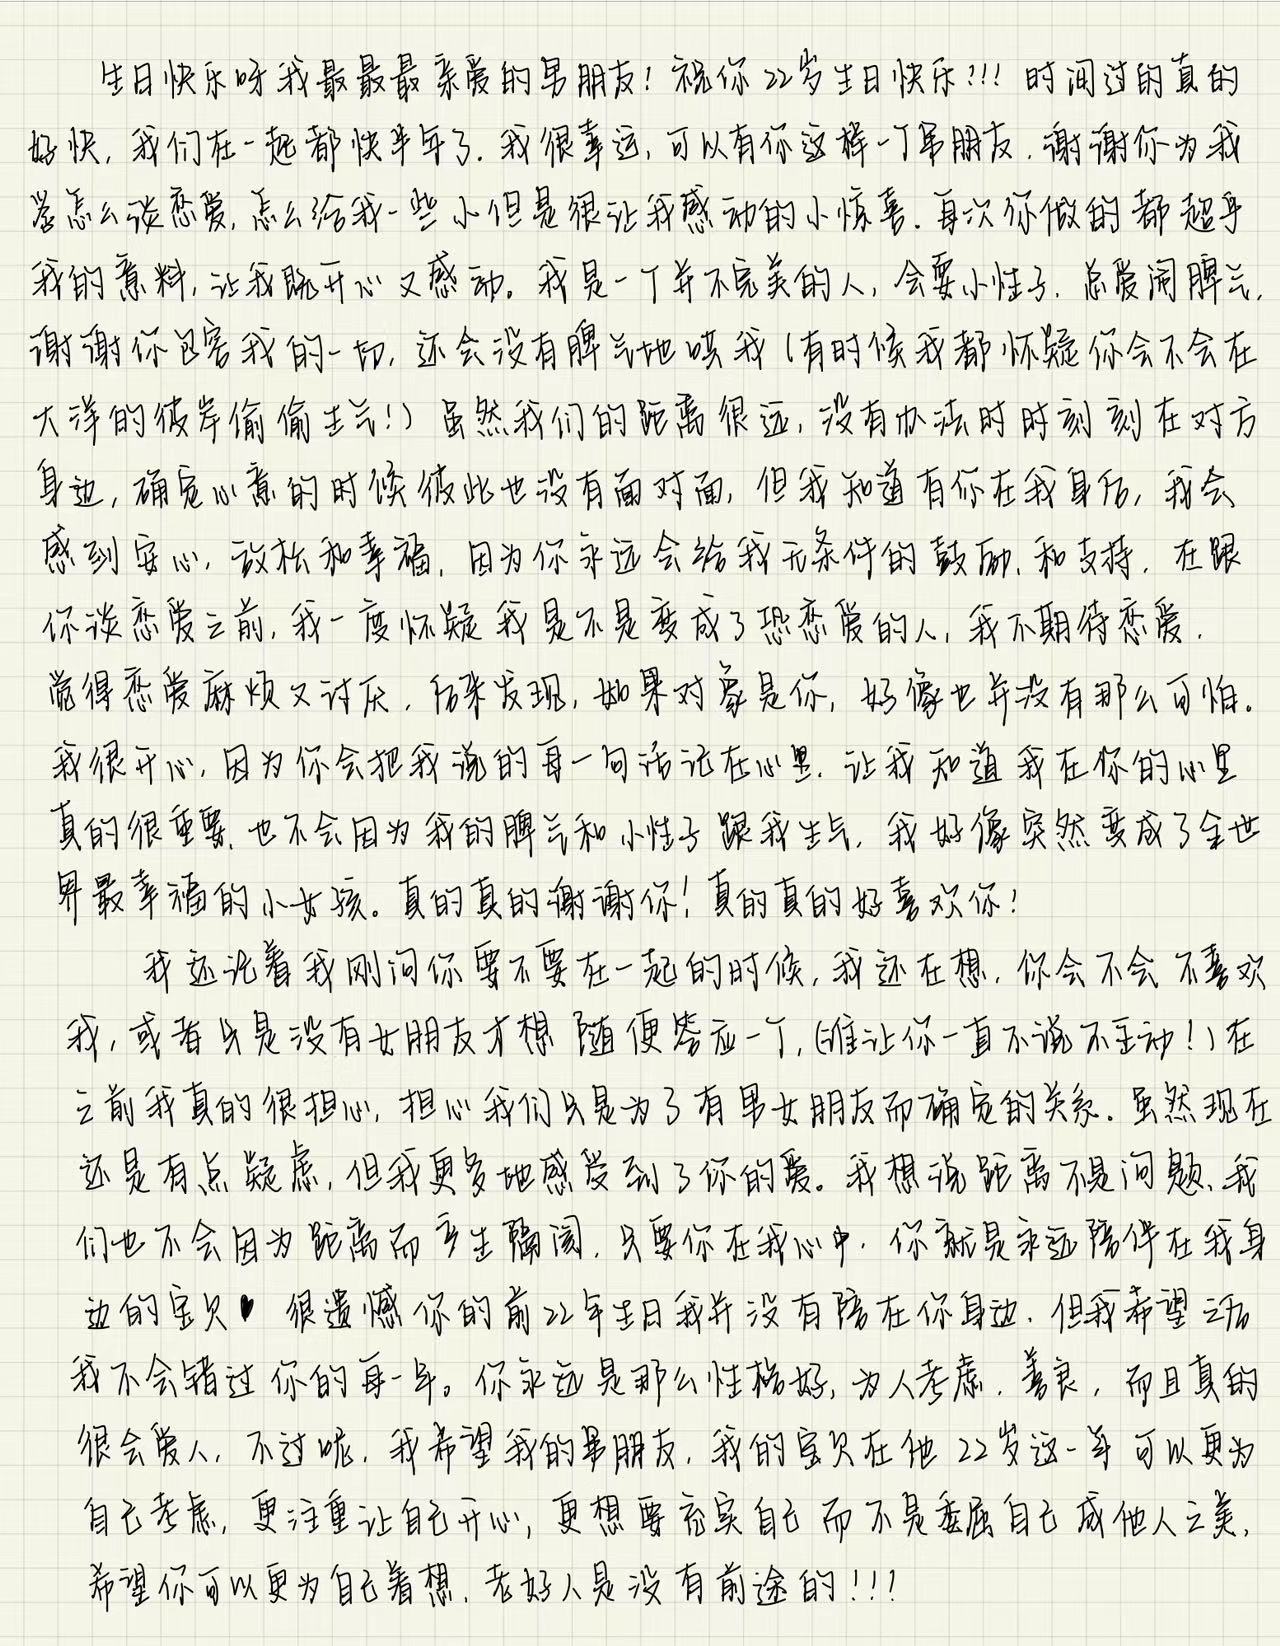 生日快乐呀我最最最亲爱的男朋友！祝你22岁生日快乐！！！时间过的真的
好快，我们在一起都快半年了．我很幸运，可以有你这样一个男朋友．谢谢你为我
学怎么谈恋爱，怎么给我一些小但是很让我感动的小惊喜．每次你做的都超乎
我的意料，让我既开心又感动。我是一个并不完美的人，会耍小性子．总爱闹脾气．
谢谢你包容我的一切，还会没有脾气地哄我（有时候我都怀疑你会不会在
大洋的彼岸偷偷生气！）虽然我们的距离很远，没有办法时时刻刻在对方
身边，确定心意的时候彼此也没有面对面，但我知道有你在我身后，我会
感到安心，放松和幸福，因为你永远会给我无条件的鼓励，和支持．在跟
你谈恋爱之前，我一度怀疑我是不是变成了恐恋爱的人，我不期待恋爱．
觉得恋爱麻烦又讨厌．后来发现，如果对象是你，好像也并没有那么可怕。
我很开心，因为你会把我说的每一句话记在心里．让我知道我在你的心里
真的很重要，也不会因为我的脾气和小性子跟我生气，我好像突然变成了全世
界最幸福的小女孩。真的真的谢谢你！真的真的好喜欢你！
我还记着我刚问你要不要在一起的时候，我还在想，你会不会不喜欢
我，或者只是没有女朋友才想随便答应一个，（谁让你一直不说不主动！）在
之前我真的很担心，担心我们只是为了有男女朋友而确定的关系．虽然现在
还是有点疑虑，但我更多地感受到了你的爱。我想说距离不是问题，我
们也不会因为距离而产生隔阂．只要你在我心中．你就是永远陪伴在我身
边的宝贝♥ 很遗憾你的前22年生日我并没有陪在你身边．但我希望之后
我不会错过你的每一年。你永远是那么性格好，为人考虑．善良，而且真的
很会爱人，不过呢，我希望我的男朋友，我的宝贝在他22岁这一年可以更为
自己考虑，更注重让自己开心，更想要充实自己而不是委屈自己成他人之美，
希望你可以更为自己着想．老好人是没有前途的！！！